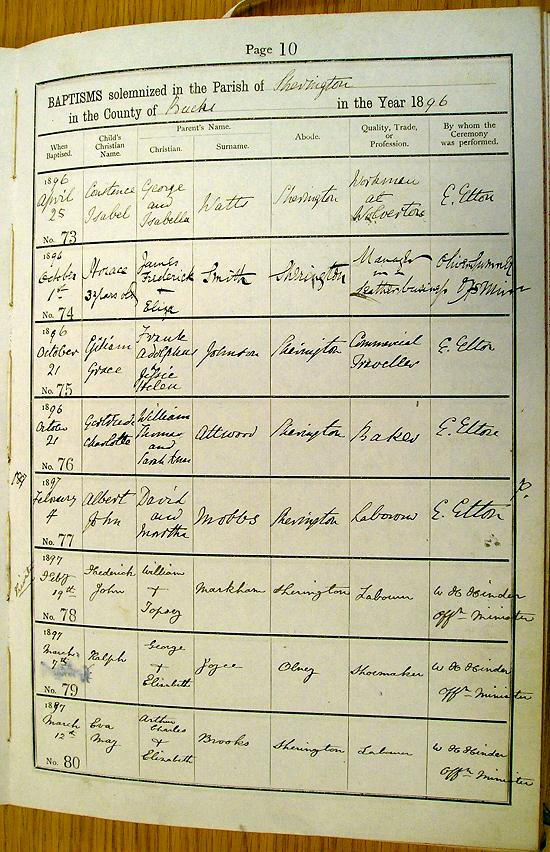 Page 10
BAPTISMS solemnized in the Parish of Sherington
in the County of Bucks in the Year 1896
When Baptised. Child's Christian Name. Parent's Name. Christian. Surname. Abode. Quality, Trade, or Profession. By whom the Ceremony was performed.
1896 April 25 No. 73 Constance Isabel George and Isabella Watts Sherington Workman at Wolverton E. Elton
1896 October 1st No. 74 Horace 32 years old James Frederick + Eliza Smith Sherington Manager in a leather business Off Minr
1896 October 21 No. 75 Grace Frank Adolphus Jessie Helen Johnson Sherington Commercial Traveller E. Elton
1896 October 21 No. 76 Gertrude Charlotte William Thomas and Sarah Ann Attwood Sherington Baker E. Elton
1897
1897 February 4 No. 77 Albert John David and Martha Mobbs Sherington Labourer E. Elton P.
Private
1897 Feby 19th No. 78 Frederick John William + Topsey Markham Sherington Labourer W H Hinder Offg Minister
1897 March 7th No. 79 Ralph George + Elizabeth Joyce Olney Shoemaker W H Hinder Offg Minister
1897 March 12th No. 80 Eva May Arthur Charles + Elizabeth Brooks Sherington Labourer W H Hinder Offg Minister